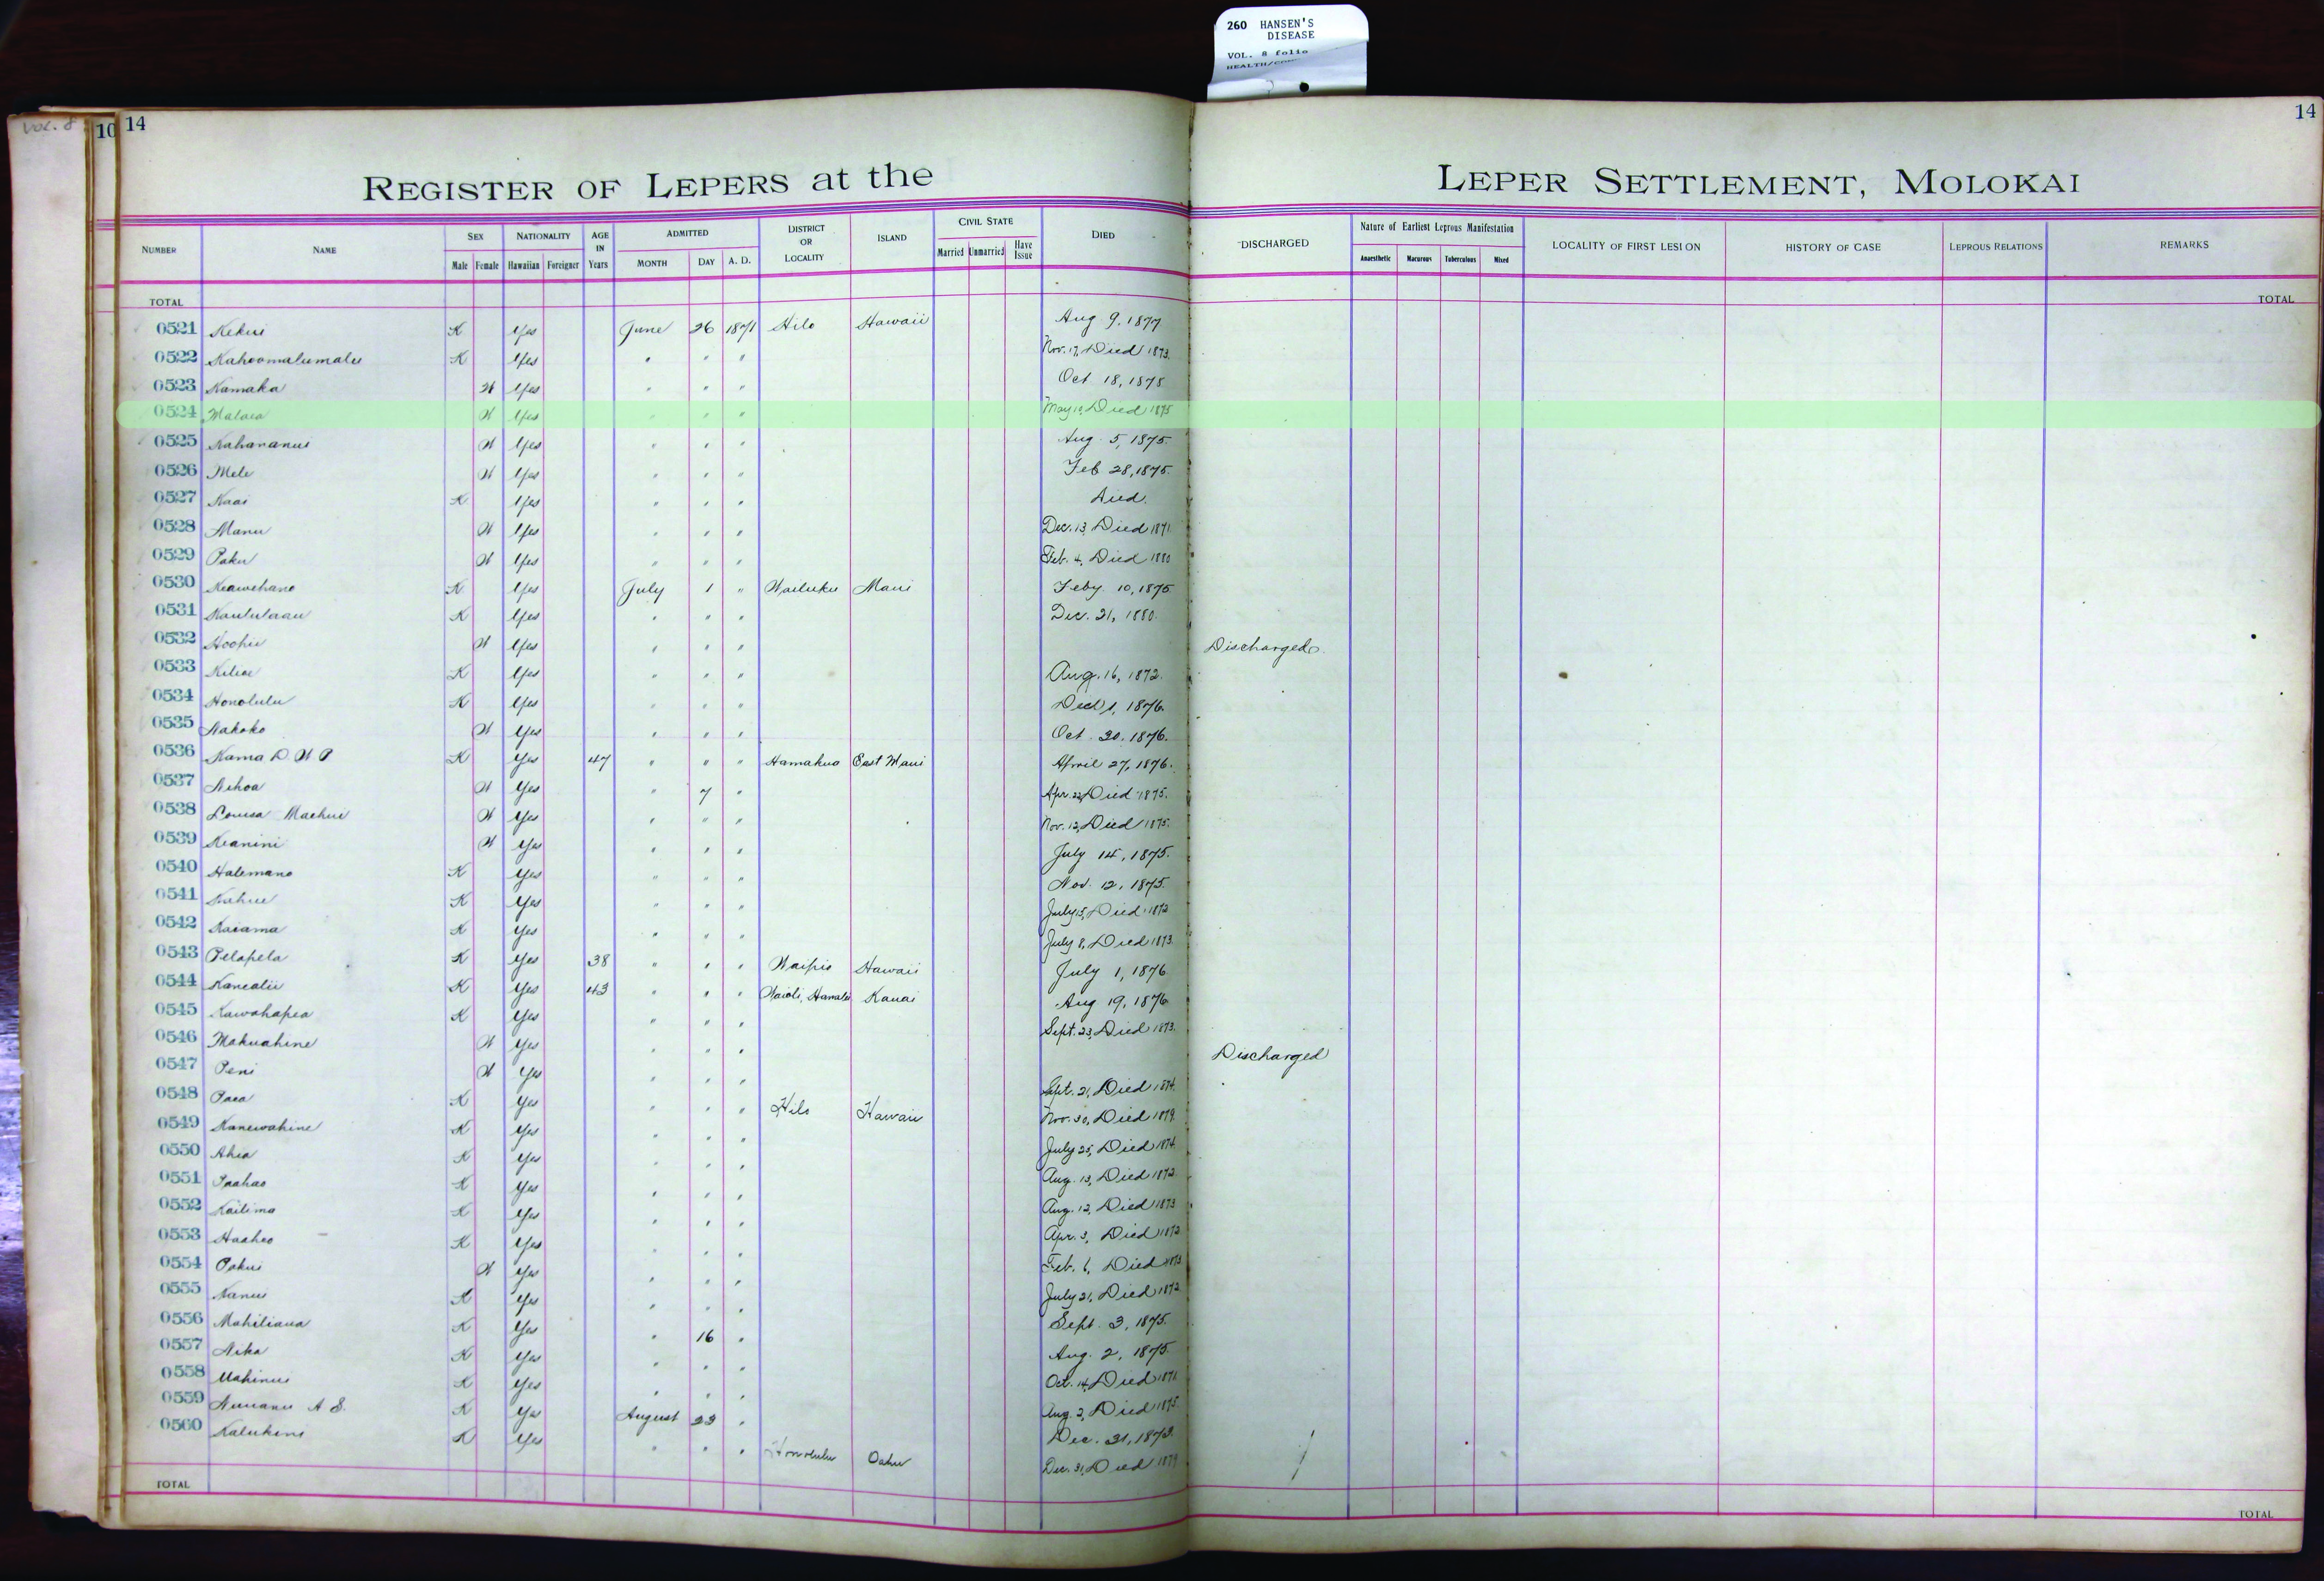 260 HANSEN'S
DISEASE
VOL. 8 folio
VOL. 8
10 14 14
REGISTER OF LEPERS at the LEPER SETTLEMENT, MOLOKAI
NUMBER NAME SEX Male Female NATIONALITY Hawaiian Foreigner AGE IN Years ADMITTED MONTH DAY A. D. DISTRICT OR LOCALITY ISLAND CIVIL STATE Married Unmarried Have Issue DIED DISCHARGED Nature of Earliest Leprous Manifestation Anaesthetic Macurous Tuberculous Mixed LOCALITY OF FIRST LESION HISTORY OF CASE LEPROUS RELATIONS REMARKS
TOTAL TOTAL
0521 Kekui K Yes June 26 1871 Hilo Hawaii Aug 9, 1877
0522 Kahoomalumalu K Yes " " " Nov. 17, Died 1873.
0523 Kamaka W Yes " " " Oct 18, 1875
0524 Malaea W Yes " " " May Died 1875
0525 W Yes " " " Aug. 5, 1875.
0526 Mele W Yes " " " Feb 28, 1875.
0527 Kaai K Yes " " " Died.
0528 Manu W Yes " " " Dec. 13, Died 1871
0529 Paku W Yes " " " Feb. 4, Died 1880
0530 Keawehano K Yes July 1 " Wailuku Maui Feby 10, 1875
0531 Kaululaau K Yes " " " Dec. 21, 1880.
0532 Hoohii W Yes " " " Discharged.
0533 Kiliae K Yes " " " Aug. 16, 1872.
0534 Honolulu K Yes " " " 1, 1876.
0535 Nakoko W Yes " " " Oct 30, 1876.
0536 Kama D. W P K Yes 47 " " " Hamakua East Maui April 27, 1876.
0537 Nihoa W Yes " 7 " Apr. 22, Died 1875.
0538 Louisa Maehui W Yes " " " Nov. 12, Died 1875.
0539 Keanini W Yes " " " July 14, 1875.
0540 Halemano K Yes " " " Nov. 12, 1875.
0541 Kahue K Yes " " " July 15, Died 1872
0542 Kaiama K Yes " " " July 8, Died 1873.
0543 Pelapela K Yes 38 " " " Waipio Hawaii July 1, 1876
0544 Kanealii K Yes 43 " " " Waioli, Hanalei Kauai Aug 19, 1876
0545 Kawahapea K Yes " " " Sept. 23, Died 1873.
0546 Makuahine W Yes " " " Discharged
0547 Peni W Yes " " " Sept. 21, Died 1874.
0548 Paea K Yes " " " Hilo Hawaii Nov. 30, Died 1879.
0549 Kanewahine K Yes " " " July 25, Died 1874
0550 Ahia K Yes " " " Aug. 13, Died 1872
0551 Paahao K Yes " " " Aug. 12, Died 1873
0552 Kailima K Yes " " " Apr. 3, Died 1872
0553 Haaheo K Yes " " " Feb. 6, Died 1873
0554 Pakui W Yes " " " July 21, Died 1872
0555 Nanui K Yes " " " Sept. 3, 1875.
0556 Mahiliana K Yes " 16 " Aug. 2, 1875
0557 Nika K Yes " " " Oct. 14, Died 1871
0558 Mahinui K Yes " " " Aug. 2, Died 1875
0559 Nuuanu A S. K Yes August 23 " Dec. 31, 1873
0560 Kalukini K Yes " " " Honolulu Oahu Dec. 31, Died 1879
TOTAL TOTAL